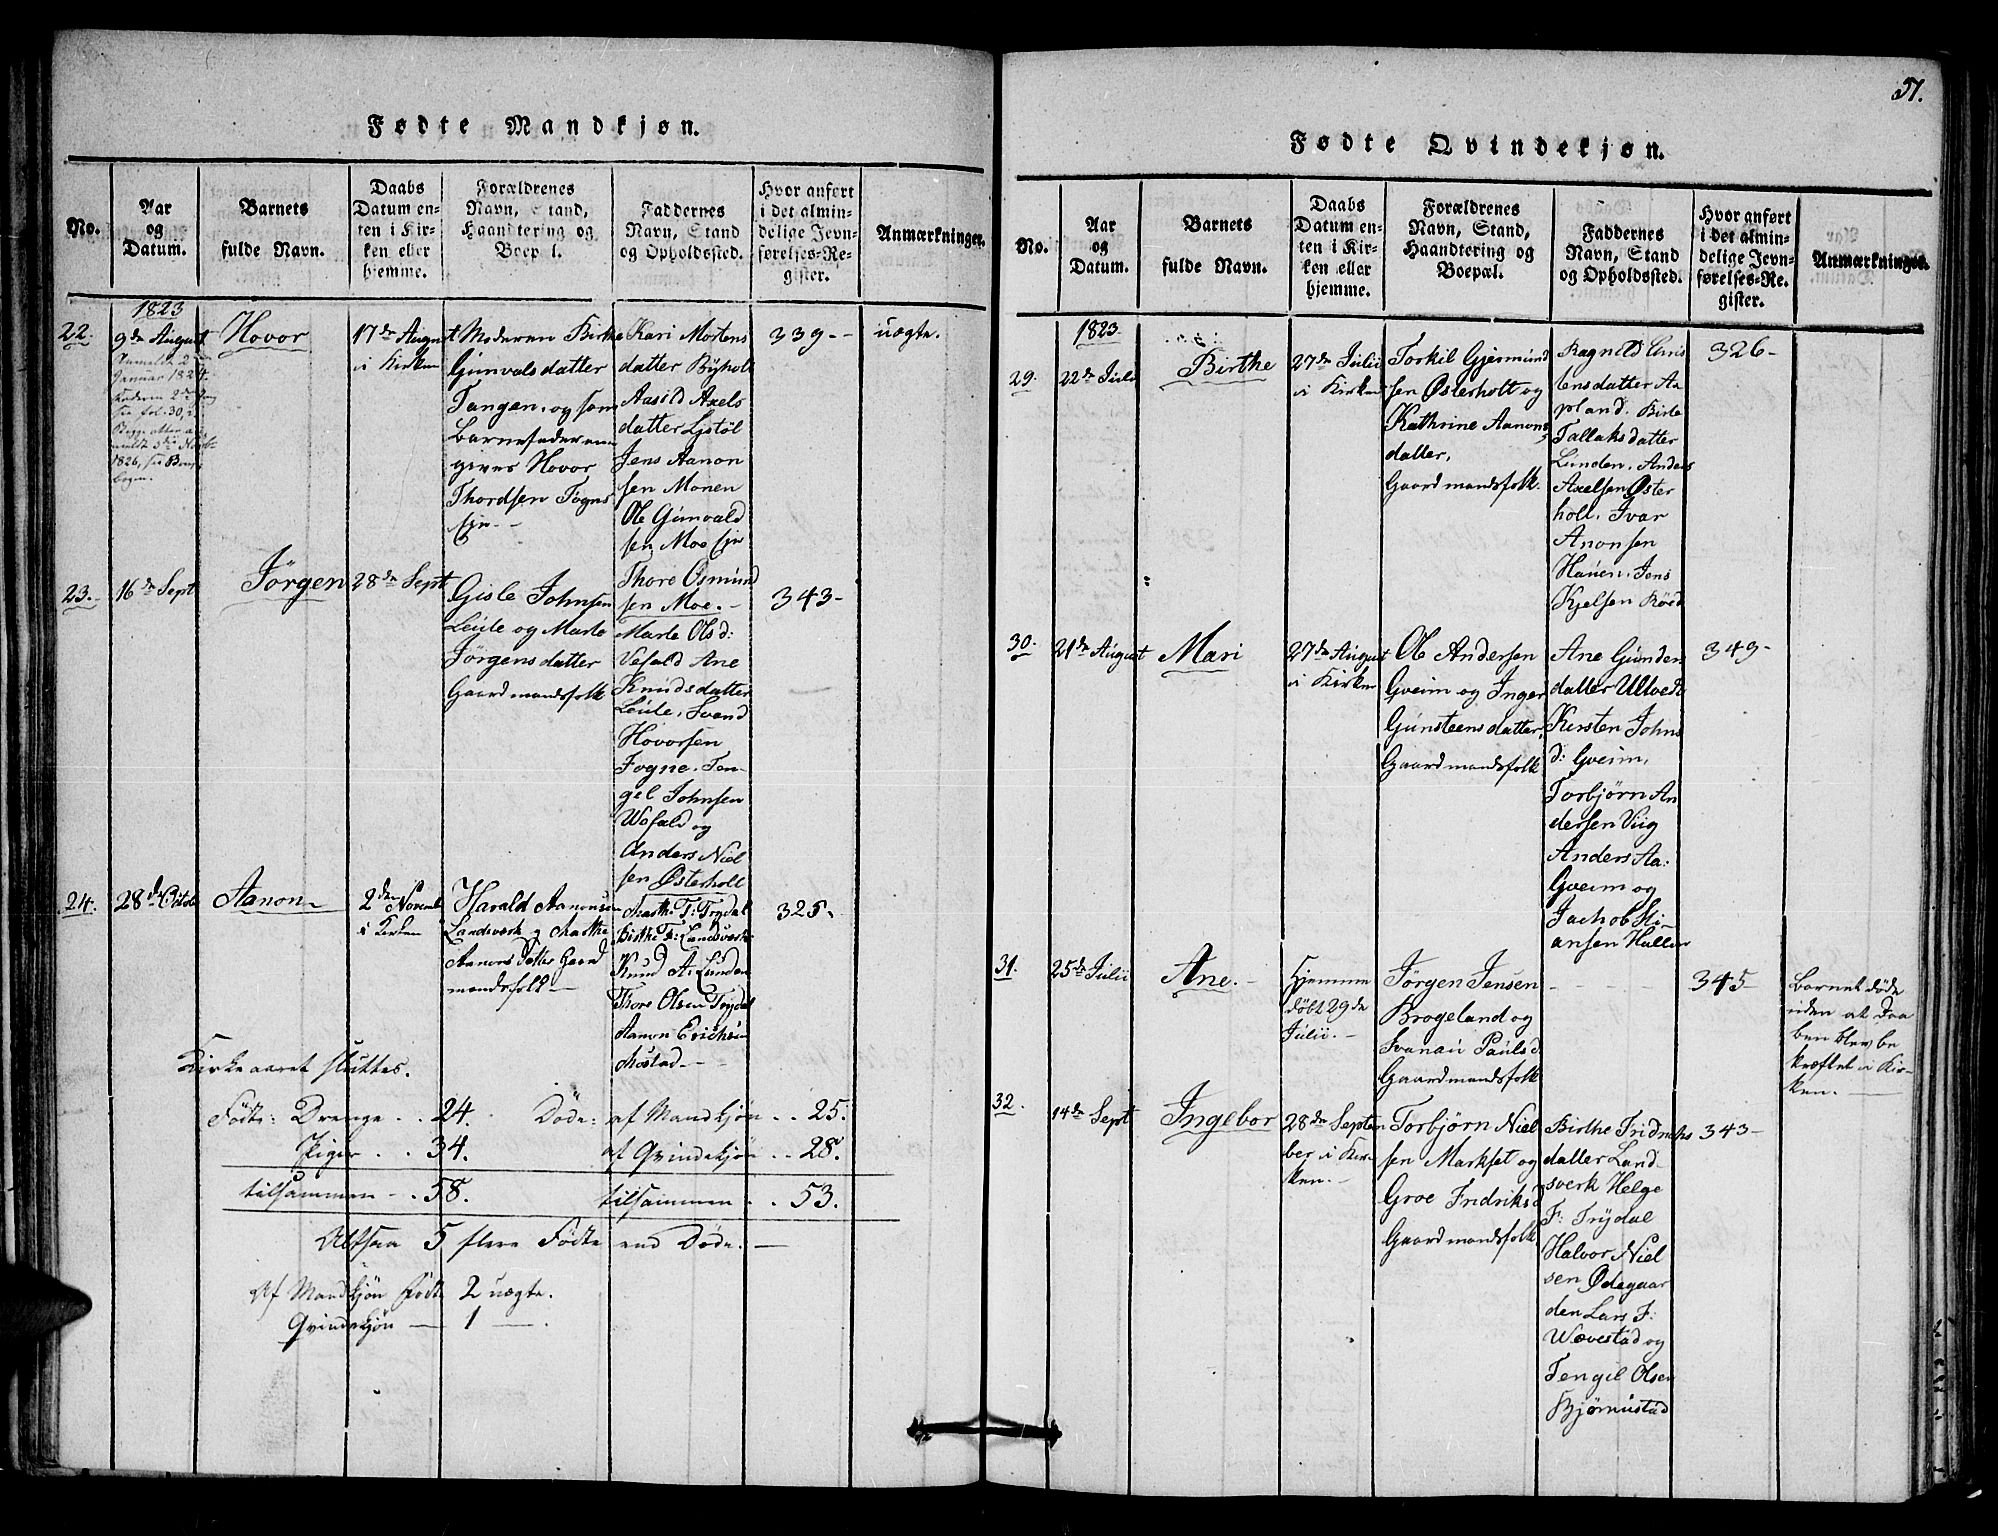 Fødte Mandkjøn.
No.
Aar
og
Datum.
Barnets
fulde Navn.
Daabs
Datum en-
ten i Kir-
ken eller
hjemme.
Forældrenes
Navn, Stand,
Haandtering og
Boepæl.
Faddernes
Navn, Stand
og Opholdssted.
Hvor anført
i det almin-
delige Jevn-
førelses-Re-
gister.
Anmærkninger.
1823
22.
9de August
Januar 1824.
see fol. 30,
1826, see
Hovor
17de August
i Kirken
Moderen Birthe
Gunvalsdatter
Tangen, og som
Barnefader an
gives Hovor
Thordsen Fogne
ejn.-
Kari Mortens
datter Byholt
Aasild Axels
datter Lystöl
Jens Aanon
sen Monen
Ole Gunvald
sen Moe ejn
Thore Osmund
sen Moe.-
339-
uægte.
23.
16de Sept
Jörgen
28de Sept
Gisle Johnsen
Leüle og Marte
Jörgensdatter
Gaardmandsfolk
Marte Olsd:
Vefald Ane
Knudsdatter
Leüle, Svend
Hovorsen
Fogne, Ten-
gel Johnsen
Wefald og
Anders Niel
sen Østerholt
343-
24.
28de Octob
Aanon
2den Novemb
i Kirken
Harald Aanonsen
Landsverk og Marthe
Aanons Datter Gaard
mandsfolk-
Marthe T: Trydal
Birthe Landsverk
Knud A: Lunden
Thore Olsen Trydal
Aanon Erichsen
Mostad-
325.
Kirkeaaret sluttes.
Födte: Drenge . . 24. Döde: af Mandkjön . . 25.
Piger . . 34. af Qvindekjön . . 28.
tilsammen - . 58. tilsammen - . 53.
Altsaa 5 flere Födte end Døde.-
Af Mandkjön Födte 2 uægte.
Qvindekjön - 1 -
51.
Fødte Qvindekjøn.
No.
Aar
og
Datum.
Barnets
fulde Navn.
Daabs
Datum en-
ten i Kir-
ken eller
hjemme.
Forældrenes
Navn, Stand,
Haandtering og
Boepæl.
Faddernes
Navn, Stand
og Opholdssted.
Hvor anført
i det almin-
delige Jevn-
førelses-Re-
gister.
Anmærkninger.
1823.
29.
22de Julii
Birthe
27de Julii
i Kirken
Torkil Gjermund
sen Østerholt og
Kathrine Aanons
datter,
Gaardmandsfolk.
Ragneld Chris
tensdatter Aa
pland. Birte
Tallaksdatter
Lunden, Anders
Axelsen Øster
holt, Ivar
Anonsen
Hauen, Jens
Kjelsen Röed
326-
30.
21de August
Mari
27de August
i Kirken
Ole Andersen
Gveim og Inger
Gunsteensdatter,
Gaardmandsfolk
Ane Gunden
datter Ulteved
Kersten Johns
d: Gveim,
Torbjørn An
dersen Viig
Anders Aa:
Gveim og
Jachob Sti
ansen Hallen
349-
31.
25de Julii
Ane.-
Hjemme
döbt 29de
Julii.-
Jørgen Jensen
Brogeland og
Svanau Paulsd
Gaardmandsfolk
345
Barnet döde
uden at Daa
ben blev be
kræftet i Kir-
ken.-
32.
14de Sept
Ingebor
28de Septem
ber i Kir-
ken.-
Torbjørn Niel
sen Markset og
Groe Fridriksd
Gaardmandsfolk
Birthe Fridrichs
datter Land-
sverk Helge
F: Trydal
Halvor Niel
sen Ødegaar
den Lars F:
Wævestad og
Tengel Olsen
Bjørnustad
343-